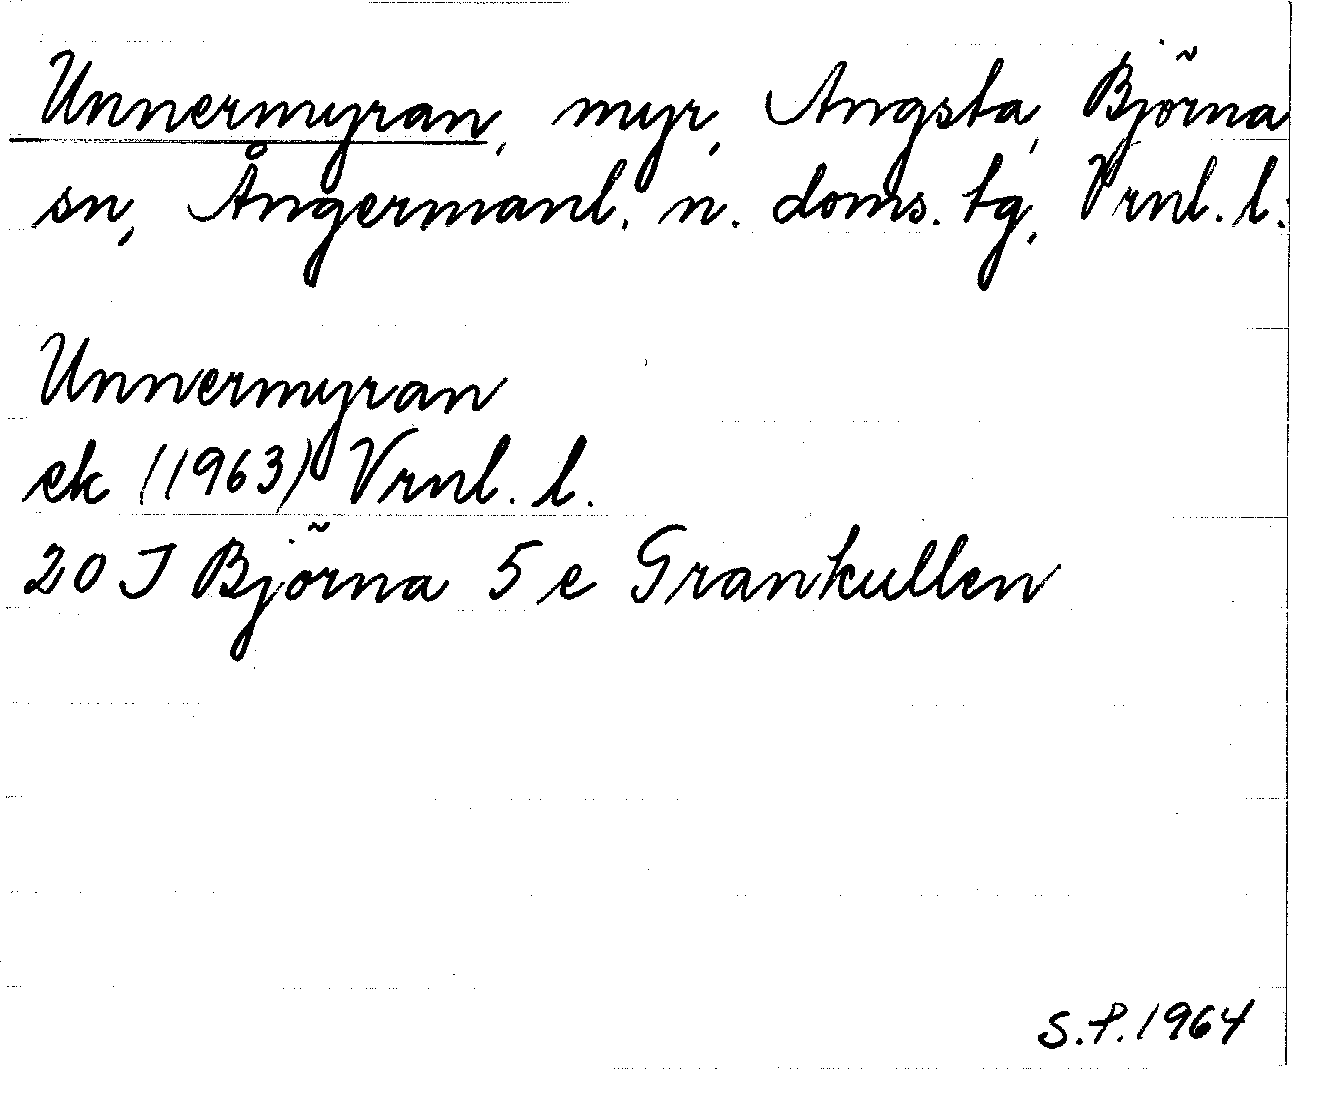 Unnermyran, myr, Angsta, Björna
sn, Ångermanl. n. doms. tg, Vrnl. l.
Unnermyran
ek (1963) Vrnl. l.
20 J Björna 5 e Grankullen
S.P. 1964